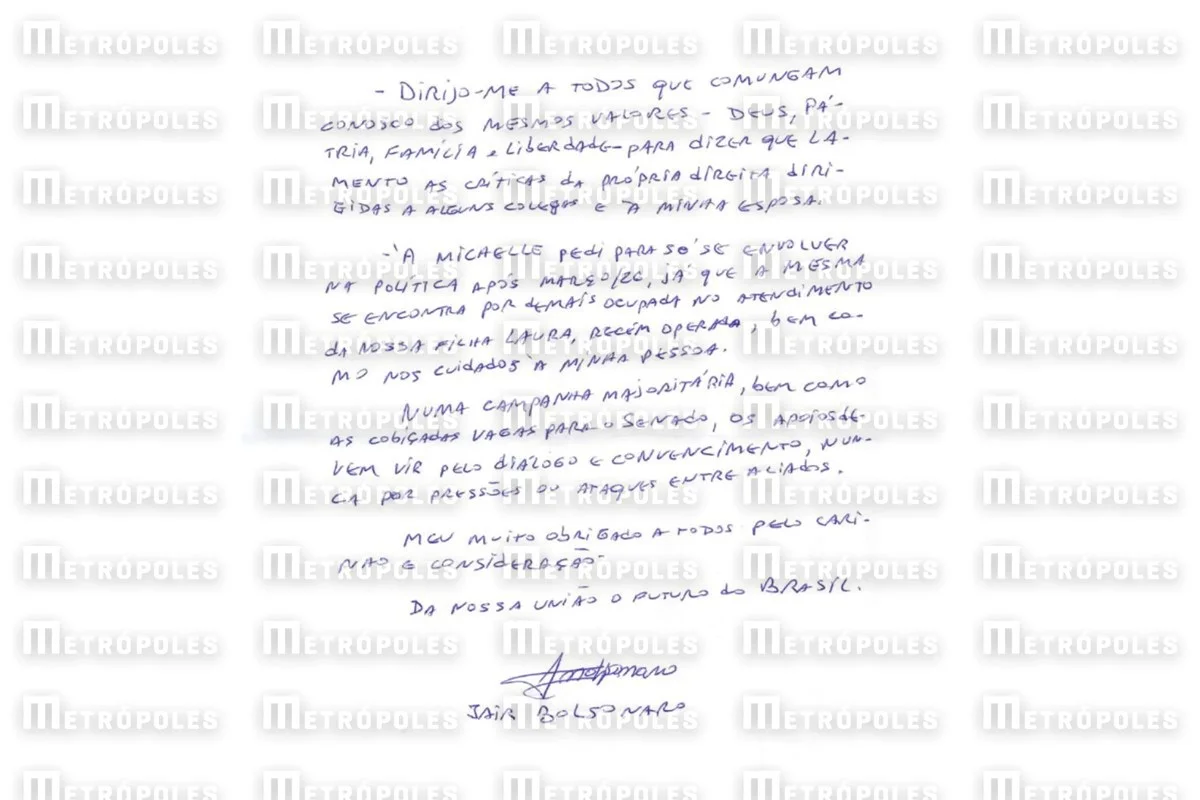 - DIRIJO-ME A TODOS QUE COMUNGAM
CONOSCO DOS MESMOS VALORES - DEUS, PÁ-
TRIA, FAMÍLIA e LIBERDADE - PARA DIZER QUE LA-
MENTO AS CRÍTICAS DA PRÓPRIA DIREITA DIRI-
GIDAS A ALGUNS COLEGAS E À MINHA ESPOSA.
- À MICHELLE PEDI PARA SÓ SE ENVOLVER
NA POLÍTICA APÓS MARÇO/26, JÁ QUE A MESMA
SE ENCONTRA POR DEMAIS OCUPADA NO ATENDIMENTO
DA NOSSA FILHA LAURA, RECÉM OPERADA, BEM CO-
MO NOS CUIDADOS À MINHA PESSOA.
NUMA CAMPANHA MAJORITÁRIA, BEM COMO
AS COBIÇADAS VAGAS PARA O SENADO, OS APOIOS DE-
VEM VIR PELO DIÁLOGO E CONVENCIMENTO, NUN-
CA POR PRESSÕES OU ATAQUES ENTRE ALIADOS.
MEU MUITO OBRIGADO A TODOS PELO CARI-
NHO E CONSIDERAÇÃO.
DA NOSSA UNIÃO O FUTURO DO BRASIL.
JAIR BOLSONARO
METRÓPOLES